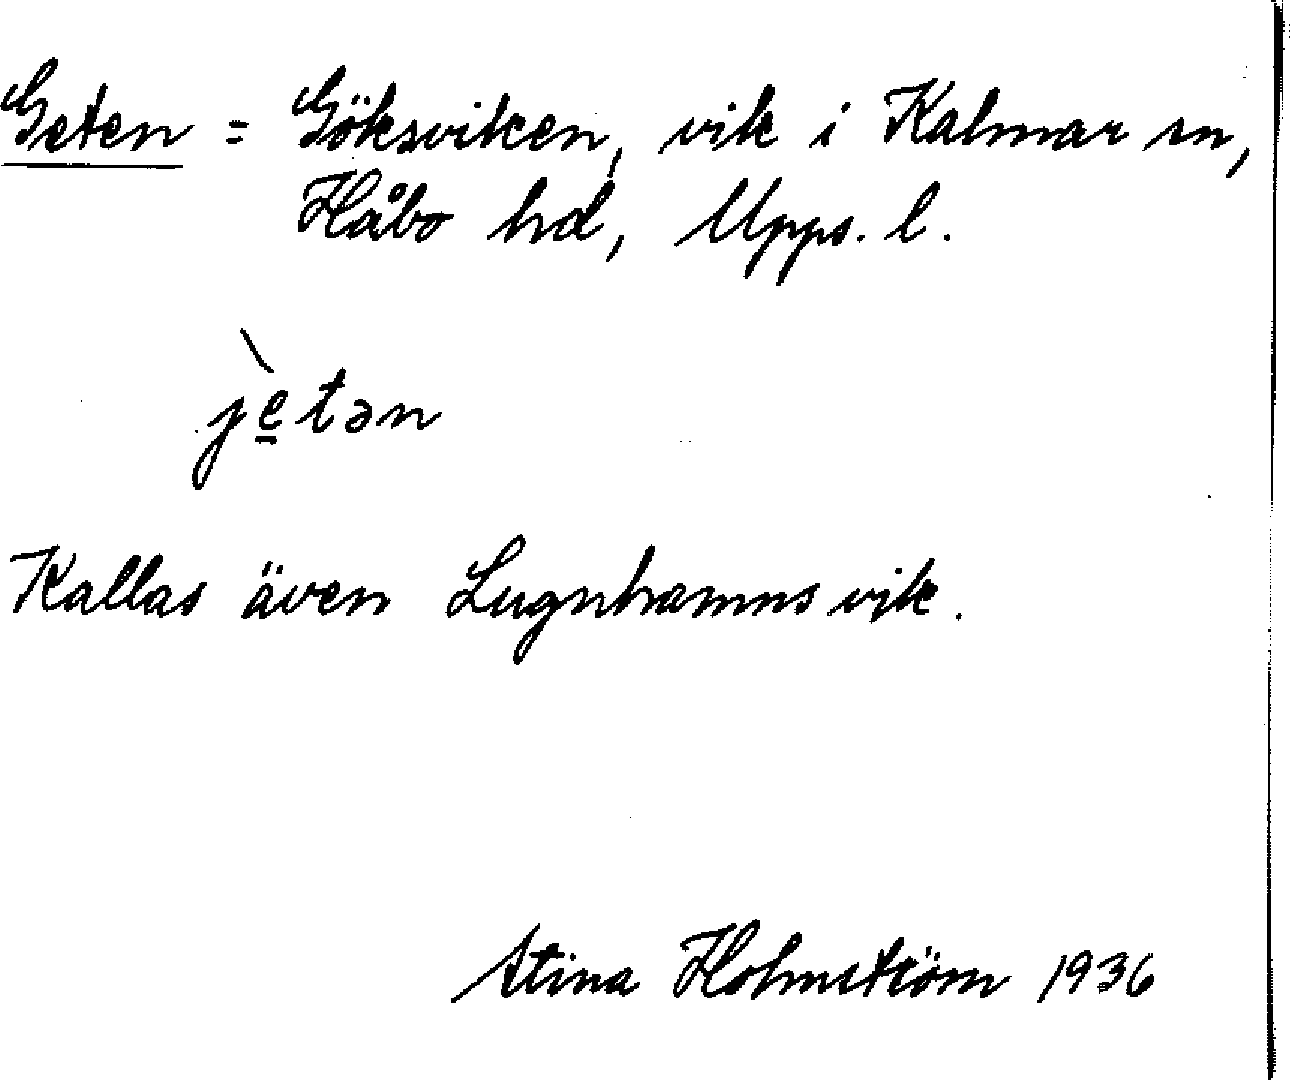 Geten = Göksviken, vik i Kalmar sn,
Håbo hd, Upps. l.
jè̱tən
Kallas även Lugnhamnsvik.
Stina Holmström 1936